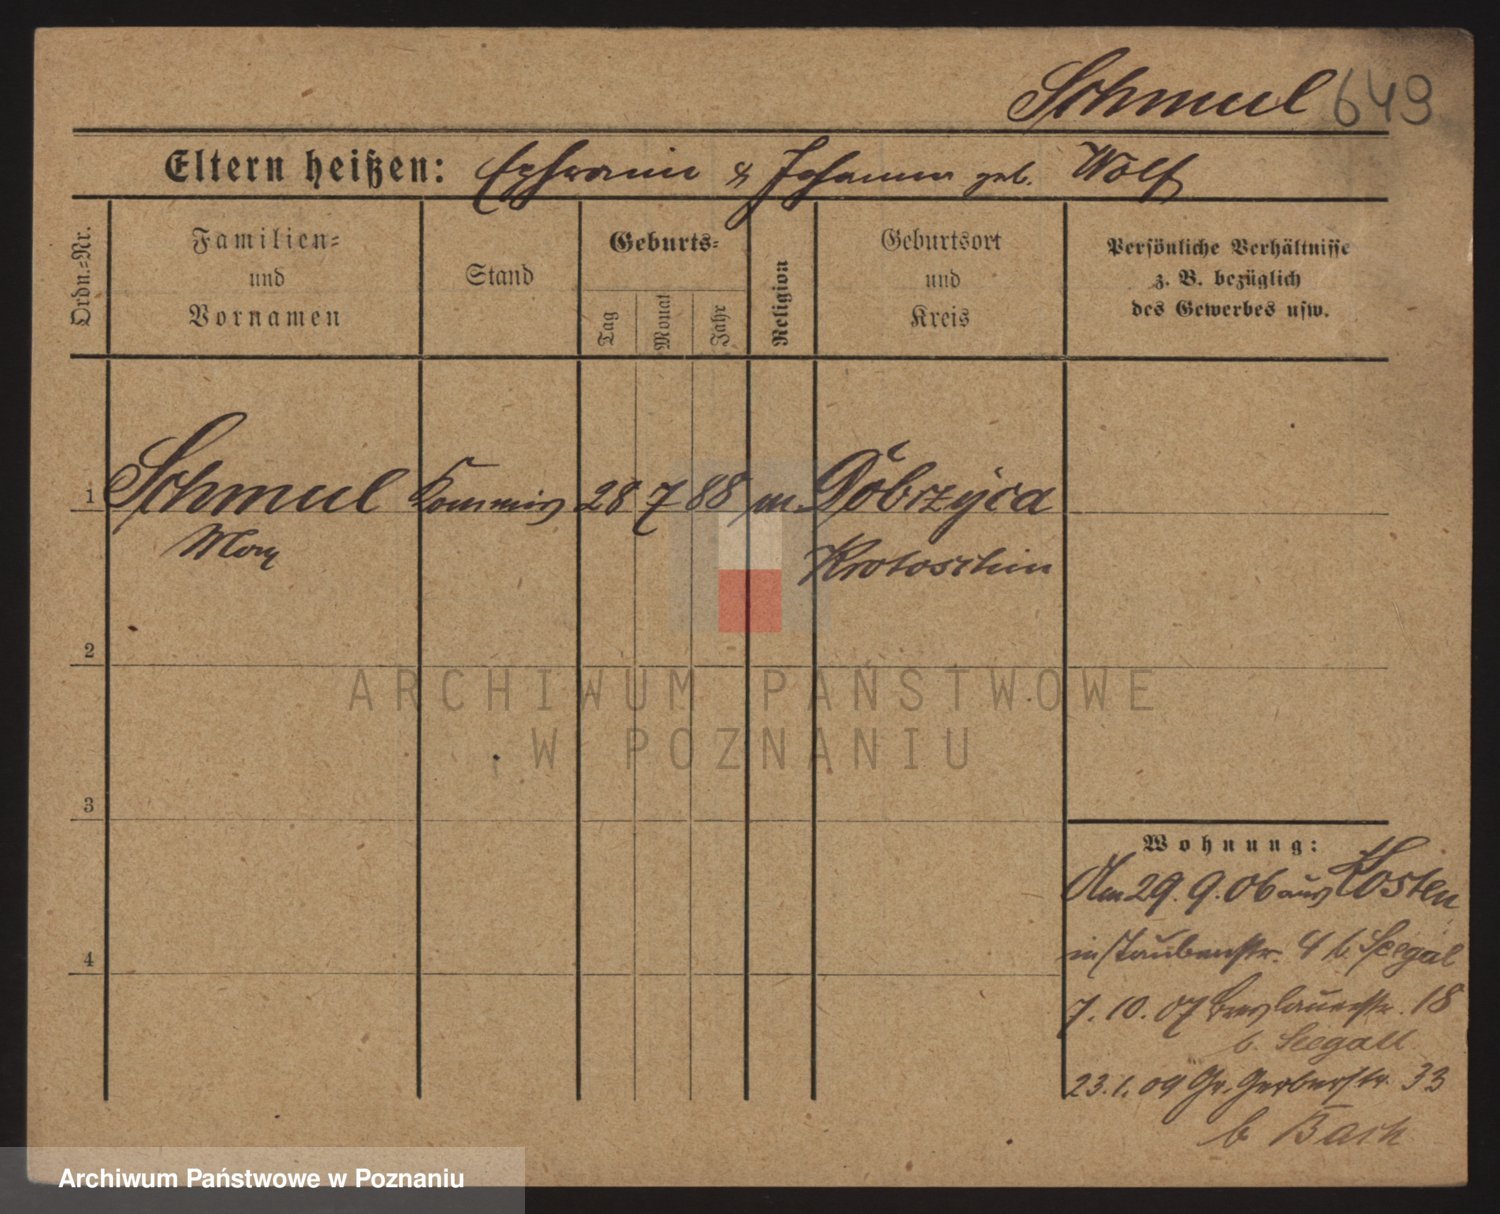 Schmul 649
Eltern heißen: Ephraim & Johanna geb. Wolf
Ordn.-Nr.
Familien-
und
Vornamen
Stand
Geburts-
Tag
Monat
Jahr
Religion
Geburtsort
und
Kreis
Persönliche Verhältnisse
z. B. bezüglich
des Gewerbes usw.
1 Schmul Kommis 28 7 88 m. Dobrzyca
Max Krotoschin
2
ARCHIWUM PAŃSTWOWE
W POZNANIU
3
Wohnung:
Am 29. 9. 06 aus Kosten
in Taubenstr. 4 b. Seegal
4
7. 10. 07 Breslauerstr. 18
b. Seegall
23. 1. 09 Gr. Gerberstr. 33
b Bach
Archiwum Państwowe w Poznaniu